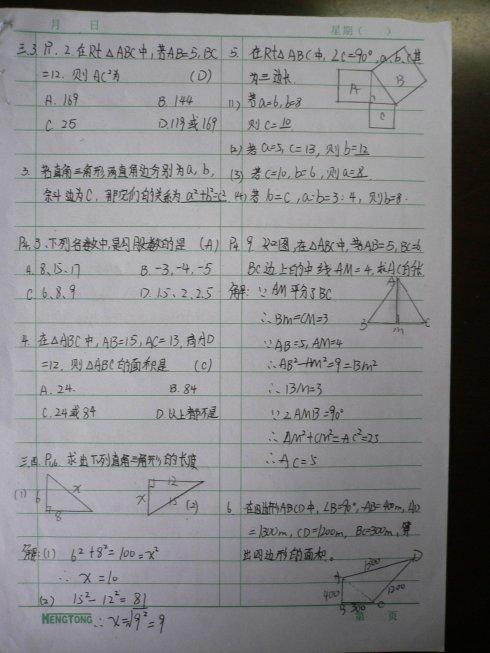 月 日 星期( )
三.3 P1. 2.在Rt△ABC中,若AB=5,BC
=12.则AC²为 (D)
A.169 B.144
C.25 D.119或169
3. 若直角三角形两直角边分别为a,b,
斜边为C,那它们的关系为a²+b²=c²
P4.3.下列各数中,是勾股数的是 (A)
A.8、15、17 B.-3,-4,-5
C.6、8、9 D.1.5、2、2.5
4.在△ABC中,AB=15,AC=13,高AD
=12.则△ABC的面积是 (C)
A.24. B.84
C.24或84 D.以上都不是
三.四.P16.求出下列直角三角形的长度
(1) 6 x 8
x 12 15 (2)
解:(1) 6²+8²=100=x²
∴ x=10
(2) 15²-12²=81
∴x=√9²=9
5. 在Rt△ABC中,∠C=90°,a、b、c其
为三边长.
A B C
(1) 若a=6,b=8
则c=10
(2) 若a=5,c=13,则b=12
(3) 若c=10,b=6,则a=8
(4) 若
a:b=3:4,则b=8.
P4.9 如图,在△ABC中,若AB=5,BC=6
BC边上的中线AM=4,求AC的长
解:∵AM平分BC
∴BM=CM=3
∵AB=5,AM=4
∴AB²-AM²=9=BM²
∴BM=3
∵∠AMB=90°
∴AM²+CM²=AC²=25
∴AC=5
A B M C
6. 在四边形ABCD中,∠B=90°,AB=400m,AD
=1300m,CD=1200m,BC=300m,算
出四边形的面积.
A 1300 D
400 1200
B 300 C
MENGTONG 第 页